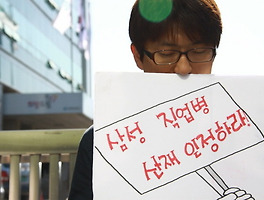 삼성 직업병
산재 인정하라